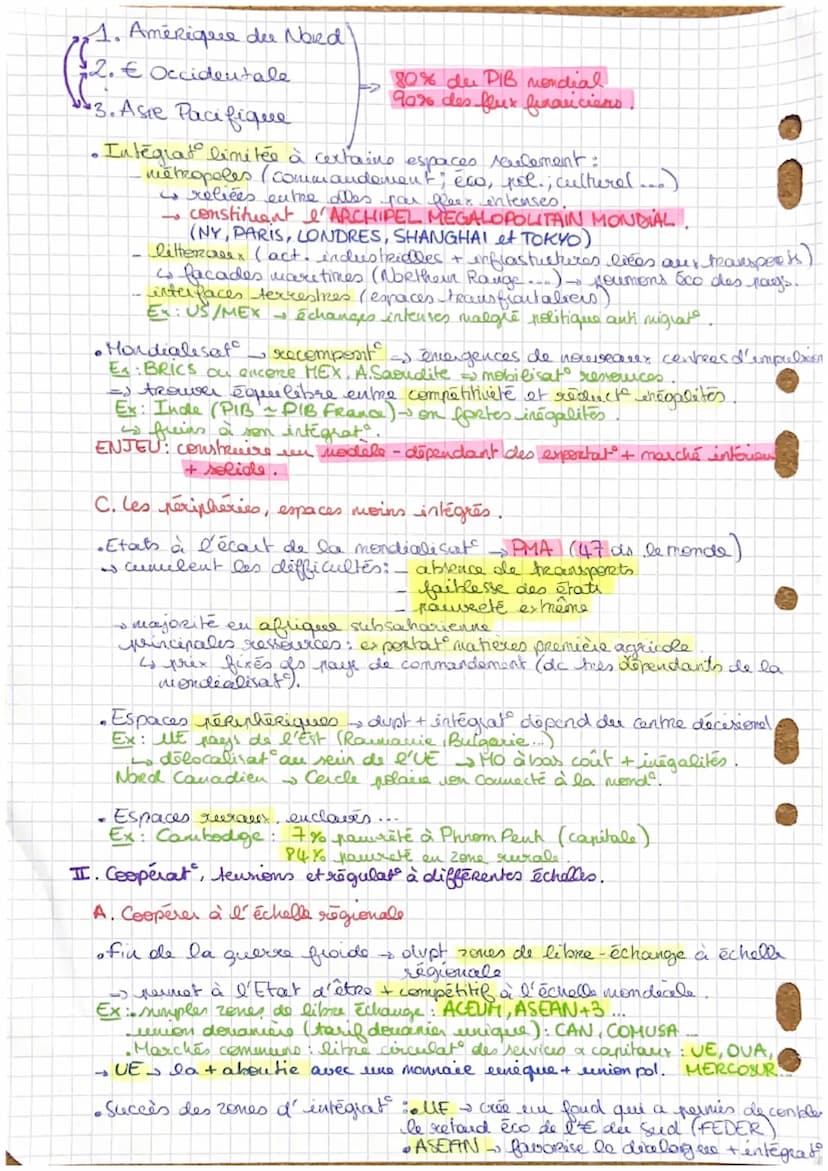 1. Amérique du Nord
2. € Occidentale
3. Asie Pacifique
→ 80% du PIB mondial
90% des flux financiers.
• Intégrat° limitée à certains espaces seulement :
- métropoles (commandement ; éco, pol. ; culturel ...)
↳ reliées entre elles par flux intenses.
→ constituent l'ARCHIPEL MEGALOPOLITAIN MONDIAL.
(NY, PARIS, LONDRES, SHANGHAI et TOKYO)
- littoraux (act. industrielles + infrastuctures liées aux transports)
↳ façades maritimes (Northern Range ...) → poumons éco des pays.
- interfaces terrestres (espaces transfrontaliers)
Ex : US/MEX → échanges intenses malgré politique anti migrat°.
• Mondialisat° → recomposit° => émergences de nouveaux centres d'impulsion
Ex : BRICS ou encore MEX, A.Saoudite => mobilisat° ressources.
=> trouver équilibre entre compétitivité et réduct° inégalités.
Ex : Inde (PIB ≃ PIB France) → on fortes inégalités.
↳ freins à son intégrat°.
ENJEU : construire un modèle - dépendant des exportat° + marché intérieur
+ solide.
C. Les périphéries, espaces moins intégrés.
• Etats à l'écart de la mondialisat° → PMA (47 ds le monde)
→ cumulent les difficultés : - absence de transports
- faiblesse des états
- pauvreté extrême
→ majorité en afrique subsaharienne
principales ressources : exportat° matières première agricole.
↳ prix fixés ds pays de commandement (dc très dépendants de la
mondialisat°).
• Espaces périphériques → dvpt + intégrat° dépend du centre décisionel
Ex : UE pays de l'Est (Roumanie, Bulgarie...)
↳ délocalisat° au sein de l'UE → MO à bas coût + inégalités.
Nord Canadien → Cercle polaire non connecté à la mond°.
• Espaces ruraux, enclavés ...
Ex : Cambodge : 7% pauvreté à Phnom Penh (capitale)
84% pauvreté en zone rurale.
II. Coopérat°, tensions et régulat° à différentes échelles.
A. Coopérer à l'échelle régionale
• fin de la guerre froide → dvpt zones de libre-échange à échelle
régionale
→ permet à l'Etat d'être + compétitif à l'échelle mondiale.
Ex : . simples zones de libre échange : ACEUM, ASEAN+3 ...
. union douanière (tarif douanier unique) : CAN, COMUSA ...
. Marchés communs : libre circulat° des services & capitaux : UE, OUA,
MERCOSUR...
→ UE → la + aboutie avec une monnaie unique + union pol.
• Succès des zones d'intégrat° : • UE → crée un fond qui a permis de combler
le retard éco de l'€ du Sud (FEDER)
• ASEAN → favorise le dialogue + intégrat°